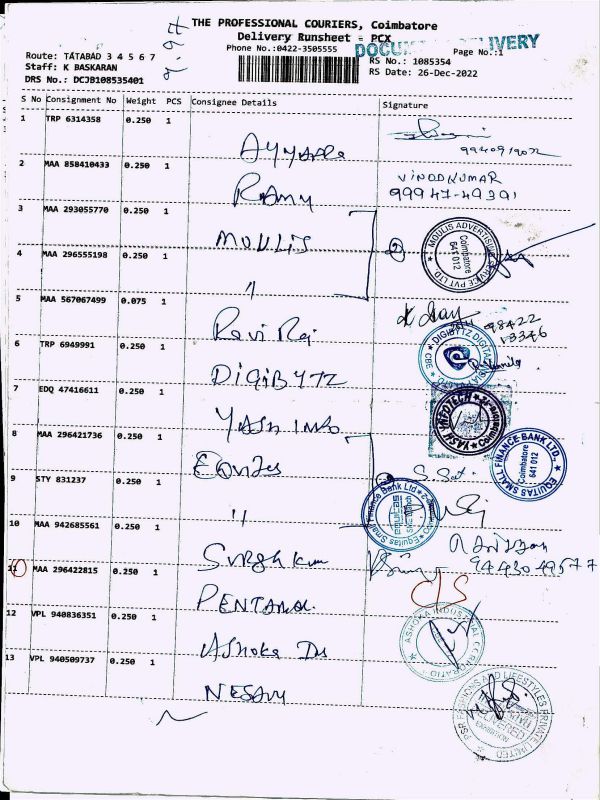 THE PROFESSIONAL COURIERS, Coimbatore
Delivery Runsheet - PCX
Phone No.:0422-3505555
DELIVERY
Page No.:1
Route: TATABAD 3 4 5 6 7
RS No.: 1085354
Staff: K BASKARAN
RS Date: 26-Dec-2022
DRS No.: DCJB108535401
S No Consignment No Weight PCS Consignee Details Signature
1 TRP 6314358 0.250 1
2 MAA 858410433 0.250 1 RAMY VINODKUMAR
99947-49391
3 MAA 293055770 0.250 1 MOULIS
MOULIS ADVERTISING SERVICE PVT LTD
Coimbatore
641 012
4 MAA 296555198 0.250 1 "
5 MAA 567067499 0.075 1 Ravi Raj 98422
13346
6 TRP 6949991 0.250 1 DIGIBYTZ
DIGIBYTZ DIGITAL
CBE
7 EDQ 47416611 0.250 1 YASH INFO
YASH INFOTECH
8 MAA 296421736 0.250 1
EQUITAS SMALL FINANCE BANK LTD.,
Coimbatore
641 012
9 STY 831237 0.250 1 "
Equitas Small Finance Bank Ltd
10 MAA 942685561 0.250 1
94430 49577
11 MAA 296422815 0.250 1
12 VPL 940836351 0.250 1 Ashoka Ind
ASHOKA INDUSTRIAL CORPORATION
13 VPL 940509737 0.250 1
PSR FASHIONS AND LIFESTYLES PRIVATE LIMITED
DELIVERED